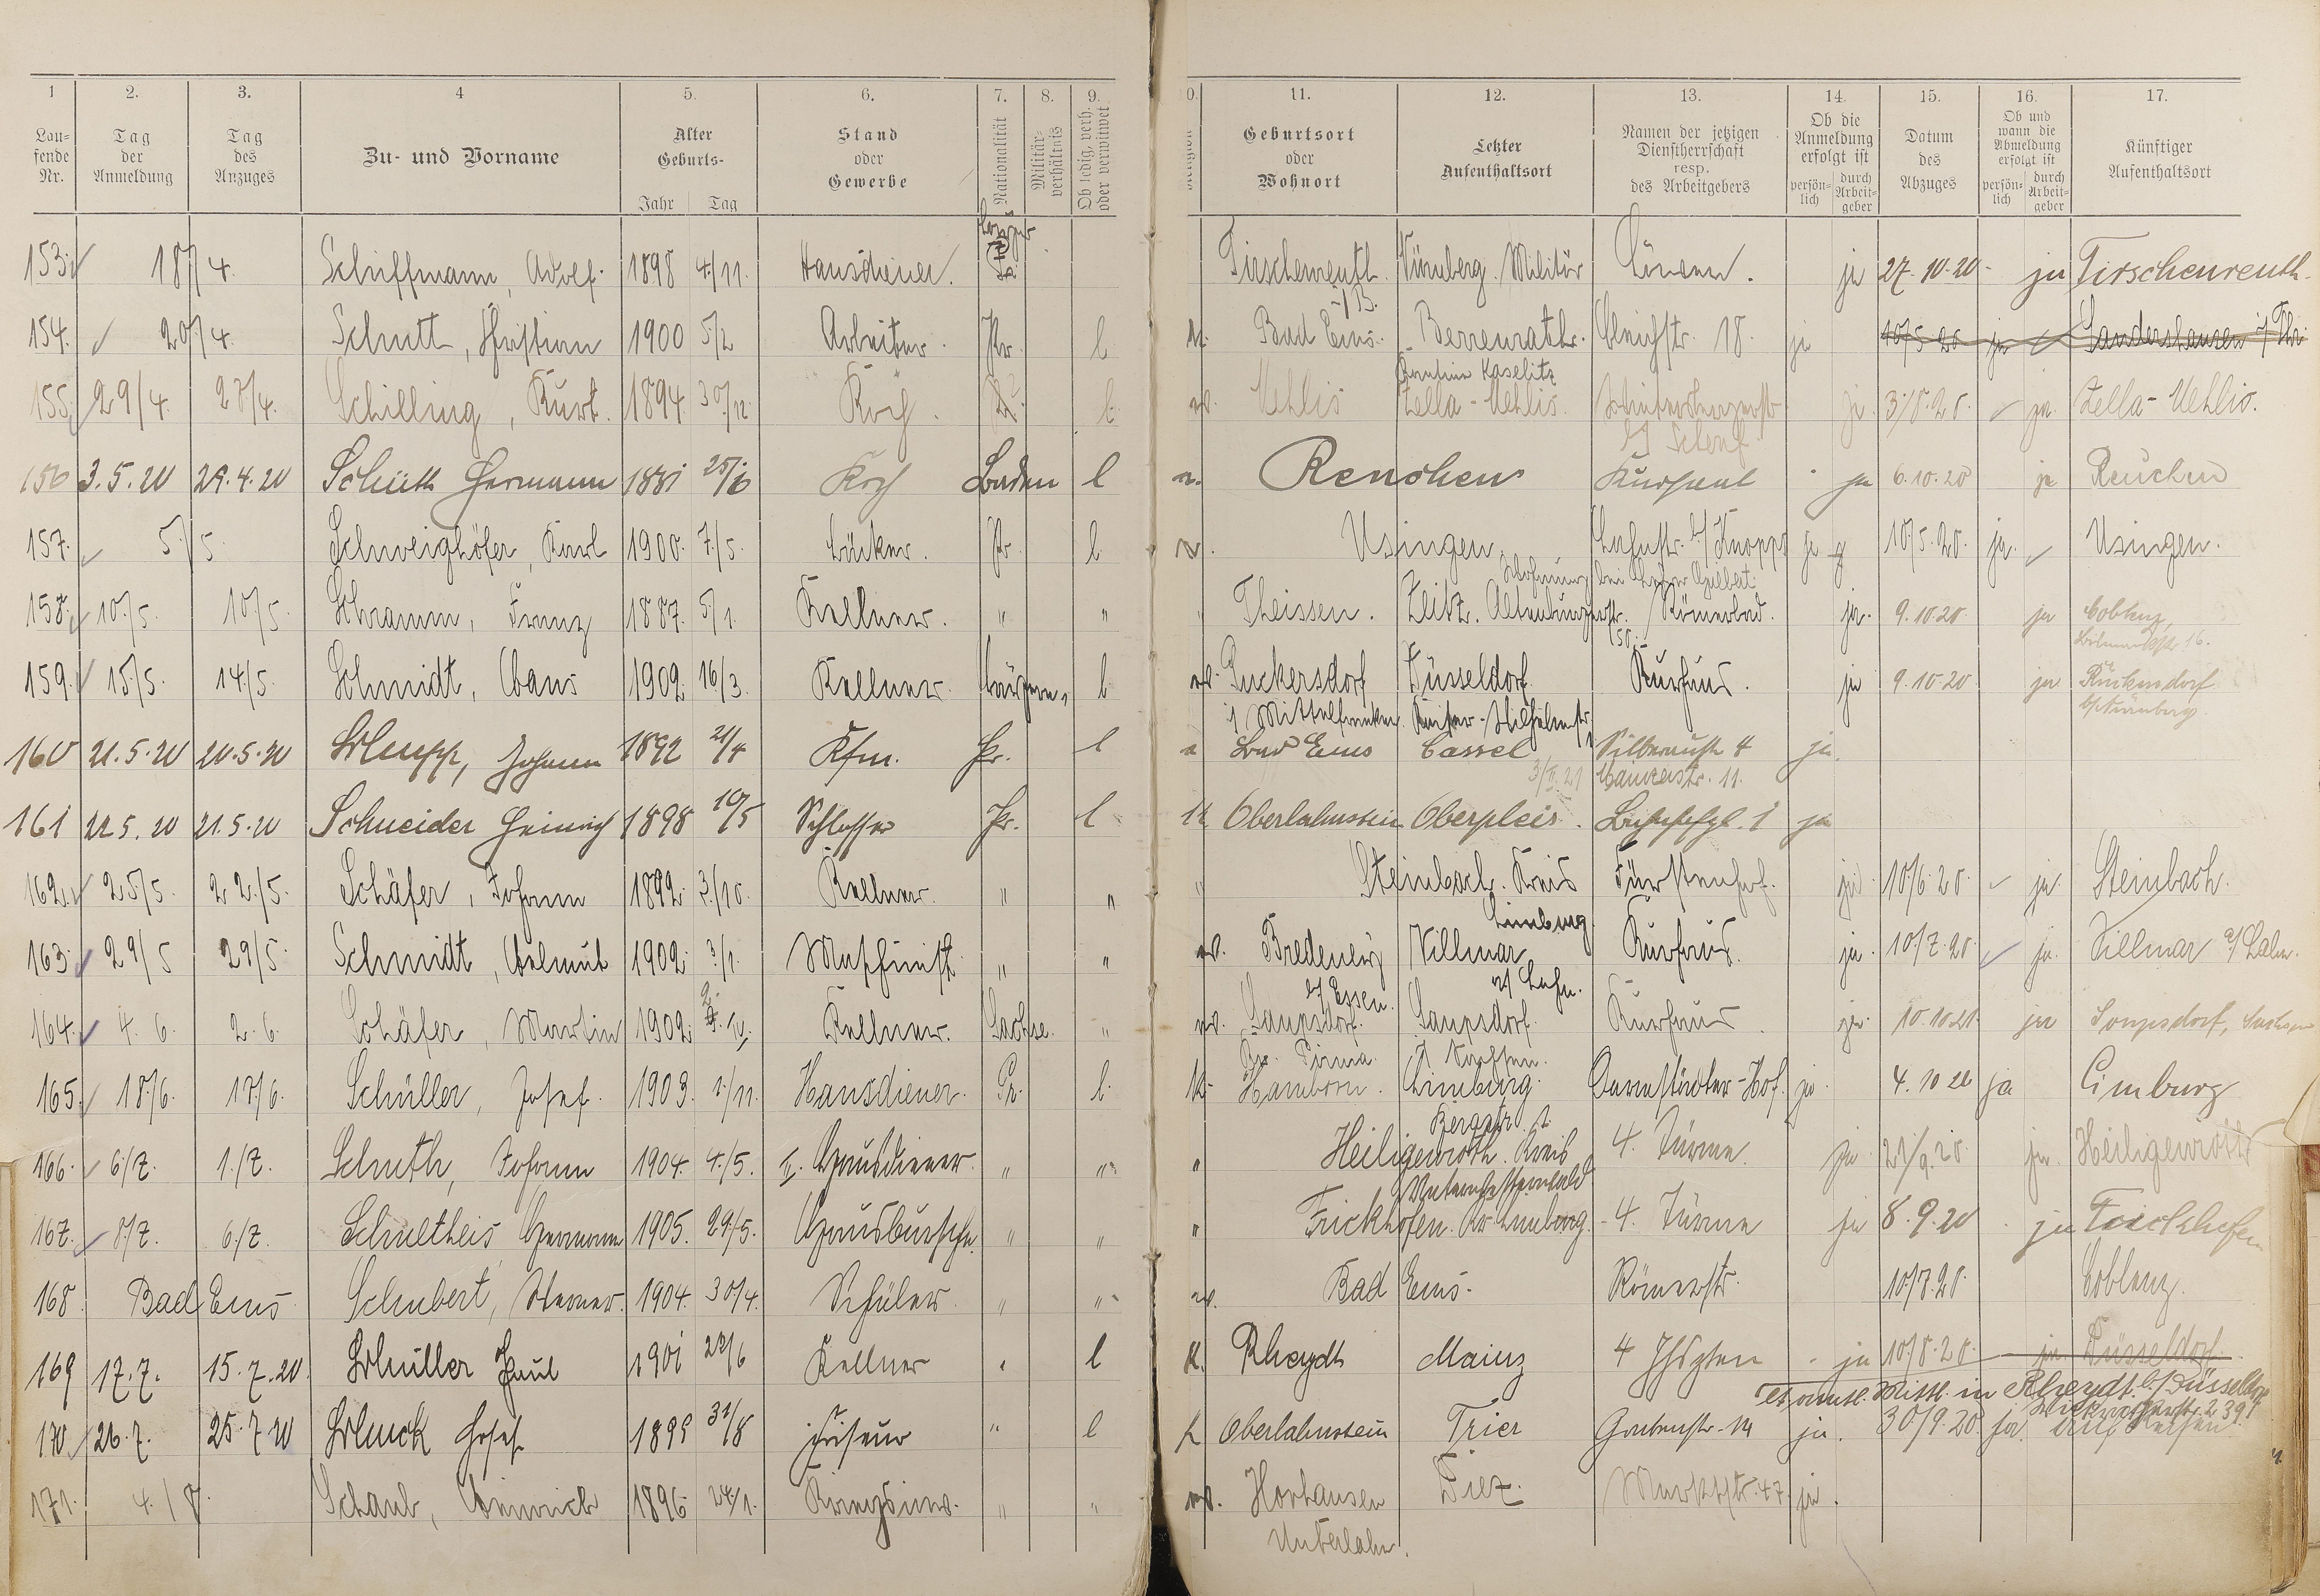 1 2. 3. 4 5. 6. 7. 8. 9. 0. 11. 12. 13. 14. 15. 16. 17.
Lau-
fende
Nr.
Tag
der
Anmeldung
Tag
des
Anzuges
Zu- und Vorname
Alter
Geburts-
Jahr Tag
Stand
oder
Gewerbe
Nationalität
Militär-
verhältnis
Ob ledig, verh.
oder verwitwet
Geburtsort
oder
Wohnort
Letzter
Aufenthaltsort
Namen der jetzigen
Dienstherrschaft
resp.
des Arbeitgebers
Ob die
Anmeldung
erfolgt ist
persön-
lich
durch
Arbeit-
geber
Datum
des
Abzuges
Ob und
wann die
Abmeldung
erfolgt ist
persön-
lich
durch
Arbeit-
geber
Künftiger
Aufenthaltsort
153. 18/4. Schiffmann, Adolf. 1898 4./11. Hausdiener. Tirschenreuth Nürnberg. Militär Löwen. ja 27.10.20 ja Tirschenreuth
154. 20/4. Schutt, Christian 1900 5/2 Arbeiter. Pr. l k. Bad Ems. Berrenrath. Bleichstr. 18. ja 10/5.20 ja Sandershausen
Kantine Kaselitz
155. 29/4. 28/4. Schilling, Kurt. 1894 30./12 Koch. l. ev. Mehlis Zella-Mehlis. ja. 3/8.20. ja. Zella-Mehlis.
156 3.5.20 29.4.20 Schütt Hermann 1881 25/6 Koch Baden l Renchen Kursaal ja 6.10.20 ja Renchen
157. 5./5. Schweighöfer, Karl 1900. 7./5. Bäcker. Pr. l. ev. Usingen. Lahnstr. b/ Knopp ja 10/5.20. ja. Usingen.
158. 10./5. 10/5. Schramm, Franz 1887. 5/1. Kellner. " " " Theissen. Zeitz. Altenburgerstr. Römerbad. ja. 9.10.20 ja Coblenz,
50.
159. 15/5. 14/5. Schmidt, Hans 1902. 16/3. Kellner. l. ev. Ruckersdorf Düsseldorf Kurhaus. ja 9.10.20 ja Rückersdorf
i/ Mittelfranken. Kaiser-Wilhelmstr. b/Nürnberg
160 21.5.20 20.5.20 Schupp, Johann 1892 21/4 Kfm. Pr. l Bad Ems Cassel Silberaustr. 4 ja.
3/II.21 Mainzerstr. 11.
161 22.5.20 21.5.20 Schneider Heinrich 1898 10/5 Schlosser Pr. l k Oberlahnstein Oberpleis. ja
162. 25/5. 22./5. Schäfer, Johann 1892. 3./10. Kellner. " " " Steinbach. Kreis Fürstenhof. ja 10/6.20. ja. Steinbach.
Limburg
163. 29/5 29/5. Schmidt, Helmut 1902. 3./1. Maschinist " " ev. Bredeney Villmar Kurhaus. ja. 10./7.20. ja. Villmar a/ Lahn.
b/ Essen. a/ Lahn.
164. 4.6. 2.6. Schäfer, Martin 1902. Kellner. Sachse. " ev. Saupsdorf. Saupsdorf. Kurhaus ja. 10.10.21. ja Saupsdorf, Sachsen
Kr. Pirna. i/ Sachsen.
165. 18./6. 17./6. Schüller, Josef. 1903. 1./11. Hausdiener. Pr. l. k. Hamborn. Limburg. Darmstädter-Hof. ja. 4.10 20 ja Limburg
Bergstr. 1.
166. 6/7. 1./7. Schuth, Johann 1904. 4./5. II. Hausdiener. " " " Heiligenroth. Kreis 4. Türme. ja 21/9.20. ja. Heiligenroth
Unterwesterwald
167. 8/7. 6./7. Schultheis Hermann 1905. 29./5. Hausbursche. " " " Frickhofen. Kr. Limburg. 4. Türme ja 8.9.20 ja Frickhofen
168. Bad Ems Schubert, Werner. 1904. 30/4. Schüler. " " ev. Bad Ems. Römerstr. 10/7.20. Coblenz.
169 17.7. 15.7.20. Schüller Paul 1901 28/6 Kellner " l k. Rheydt Mainz 4 ja 10/8.20. ja Düsseldorf.
lt. amtl. Mittl. in Rheydt. b/ Düsseldorf
170 26.7. 25.7 20 Schuck Josef 1899 31/8 Friseur " l k Oberlahnstein Trier Grabenstr. 14 ja. 30/9.20. ja. auf Reisen
171. 4./8. Schaub, Heinrich 1896 24./1. " " ev. Horhausen Diez. Marktstr. 47. ja.
Unterlahn.